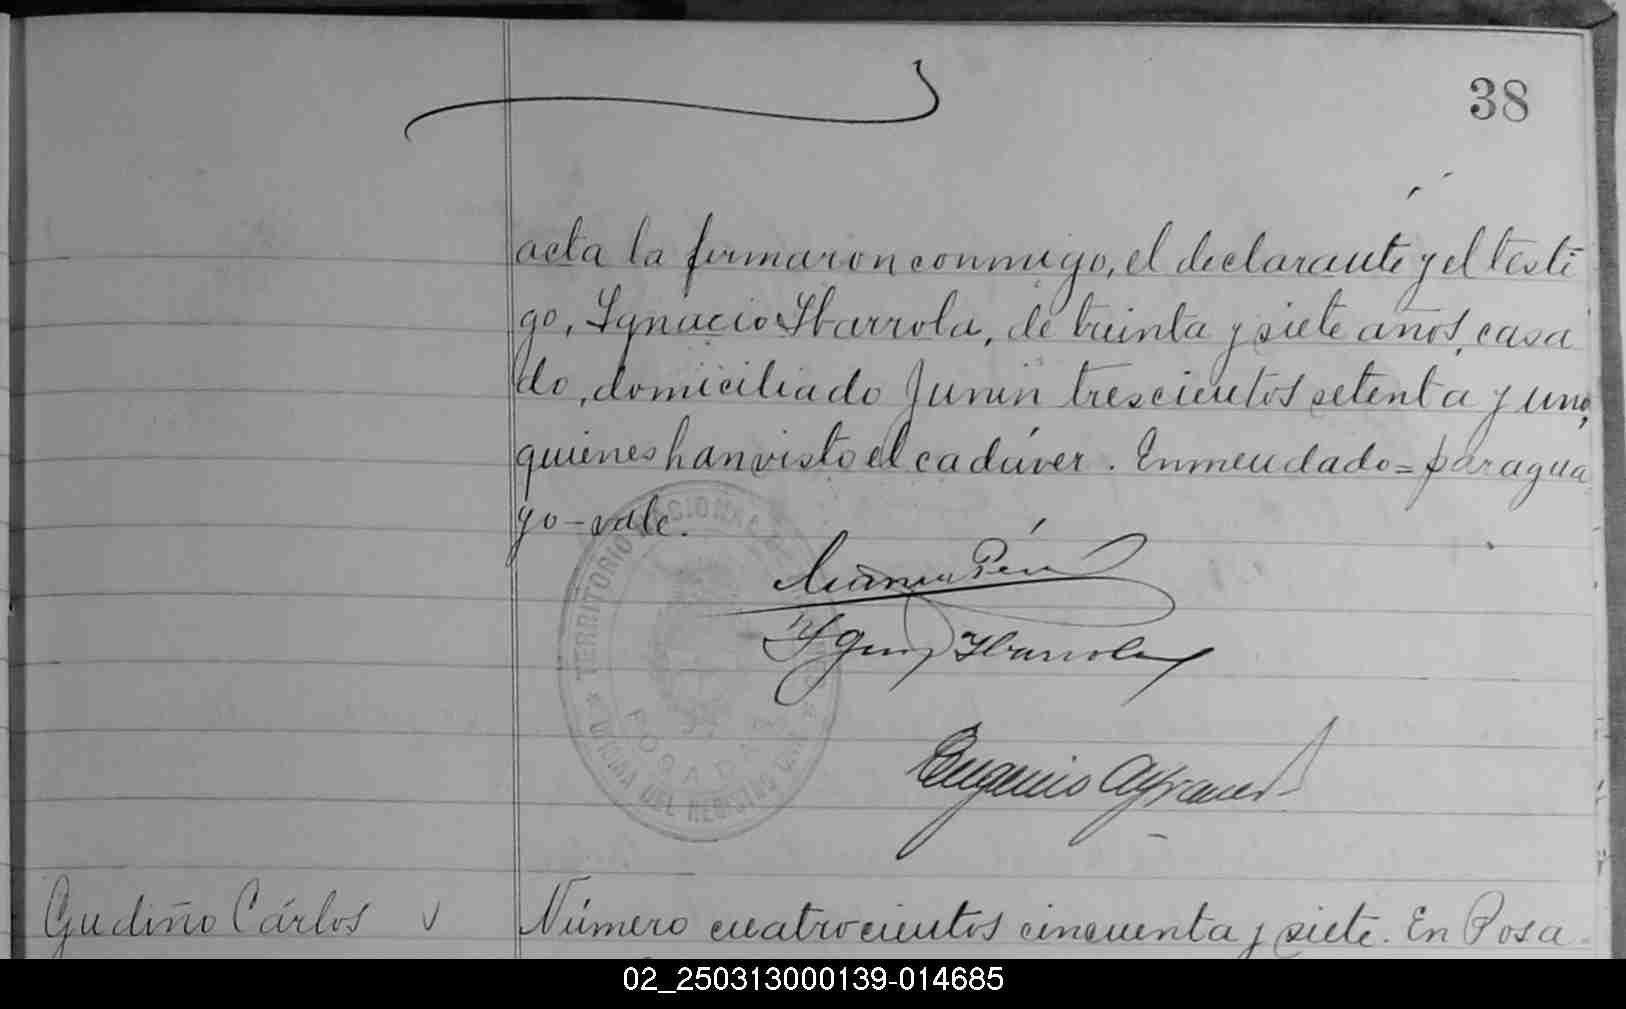 38
acta la firmaron conmigo, el declarante y el testi
go, Ygnacio Ybarrola, de treinta y siete años, casa
do, domiciliado Junin trescientos setenta y uno,
quienes han visto el cadáver. Enmendado = paragua
yo - vale.
Ybarrola
Eugenio
TERRITORIO NACIONAL
POSADAS
OFICINA DEL REGISTRO CIVIL
Gudiño Cárlos
Número cuatrocientos cincuenta y siete. En Posa-
02_250313000139-014685